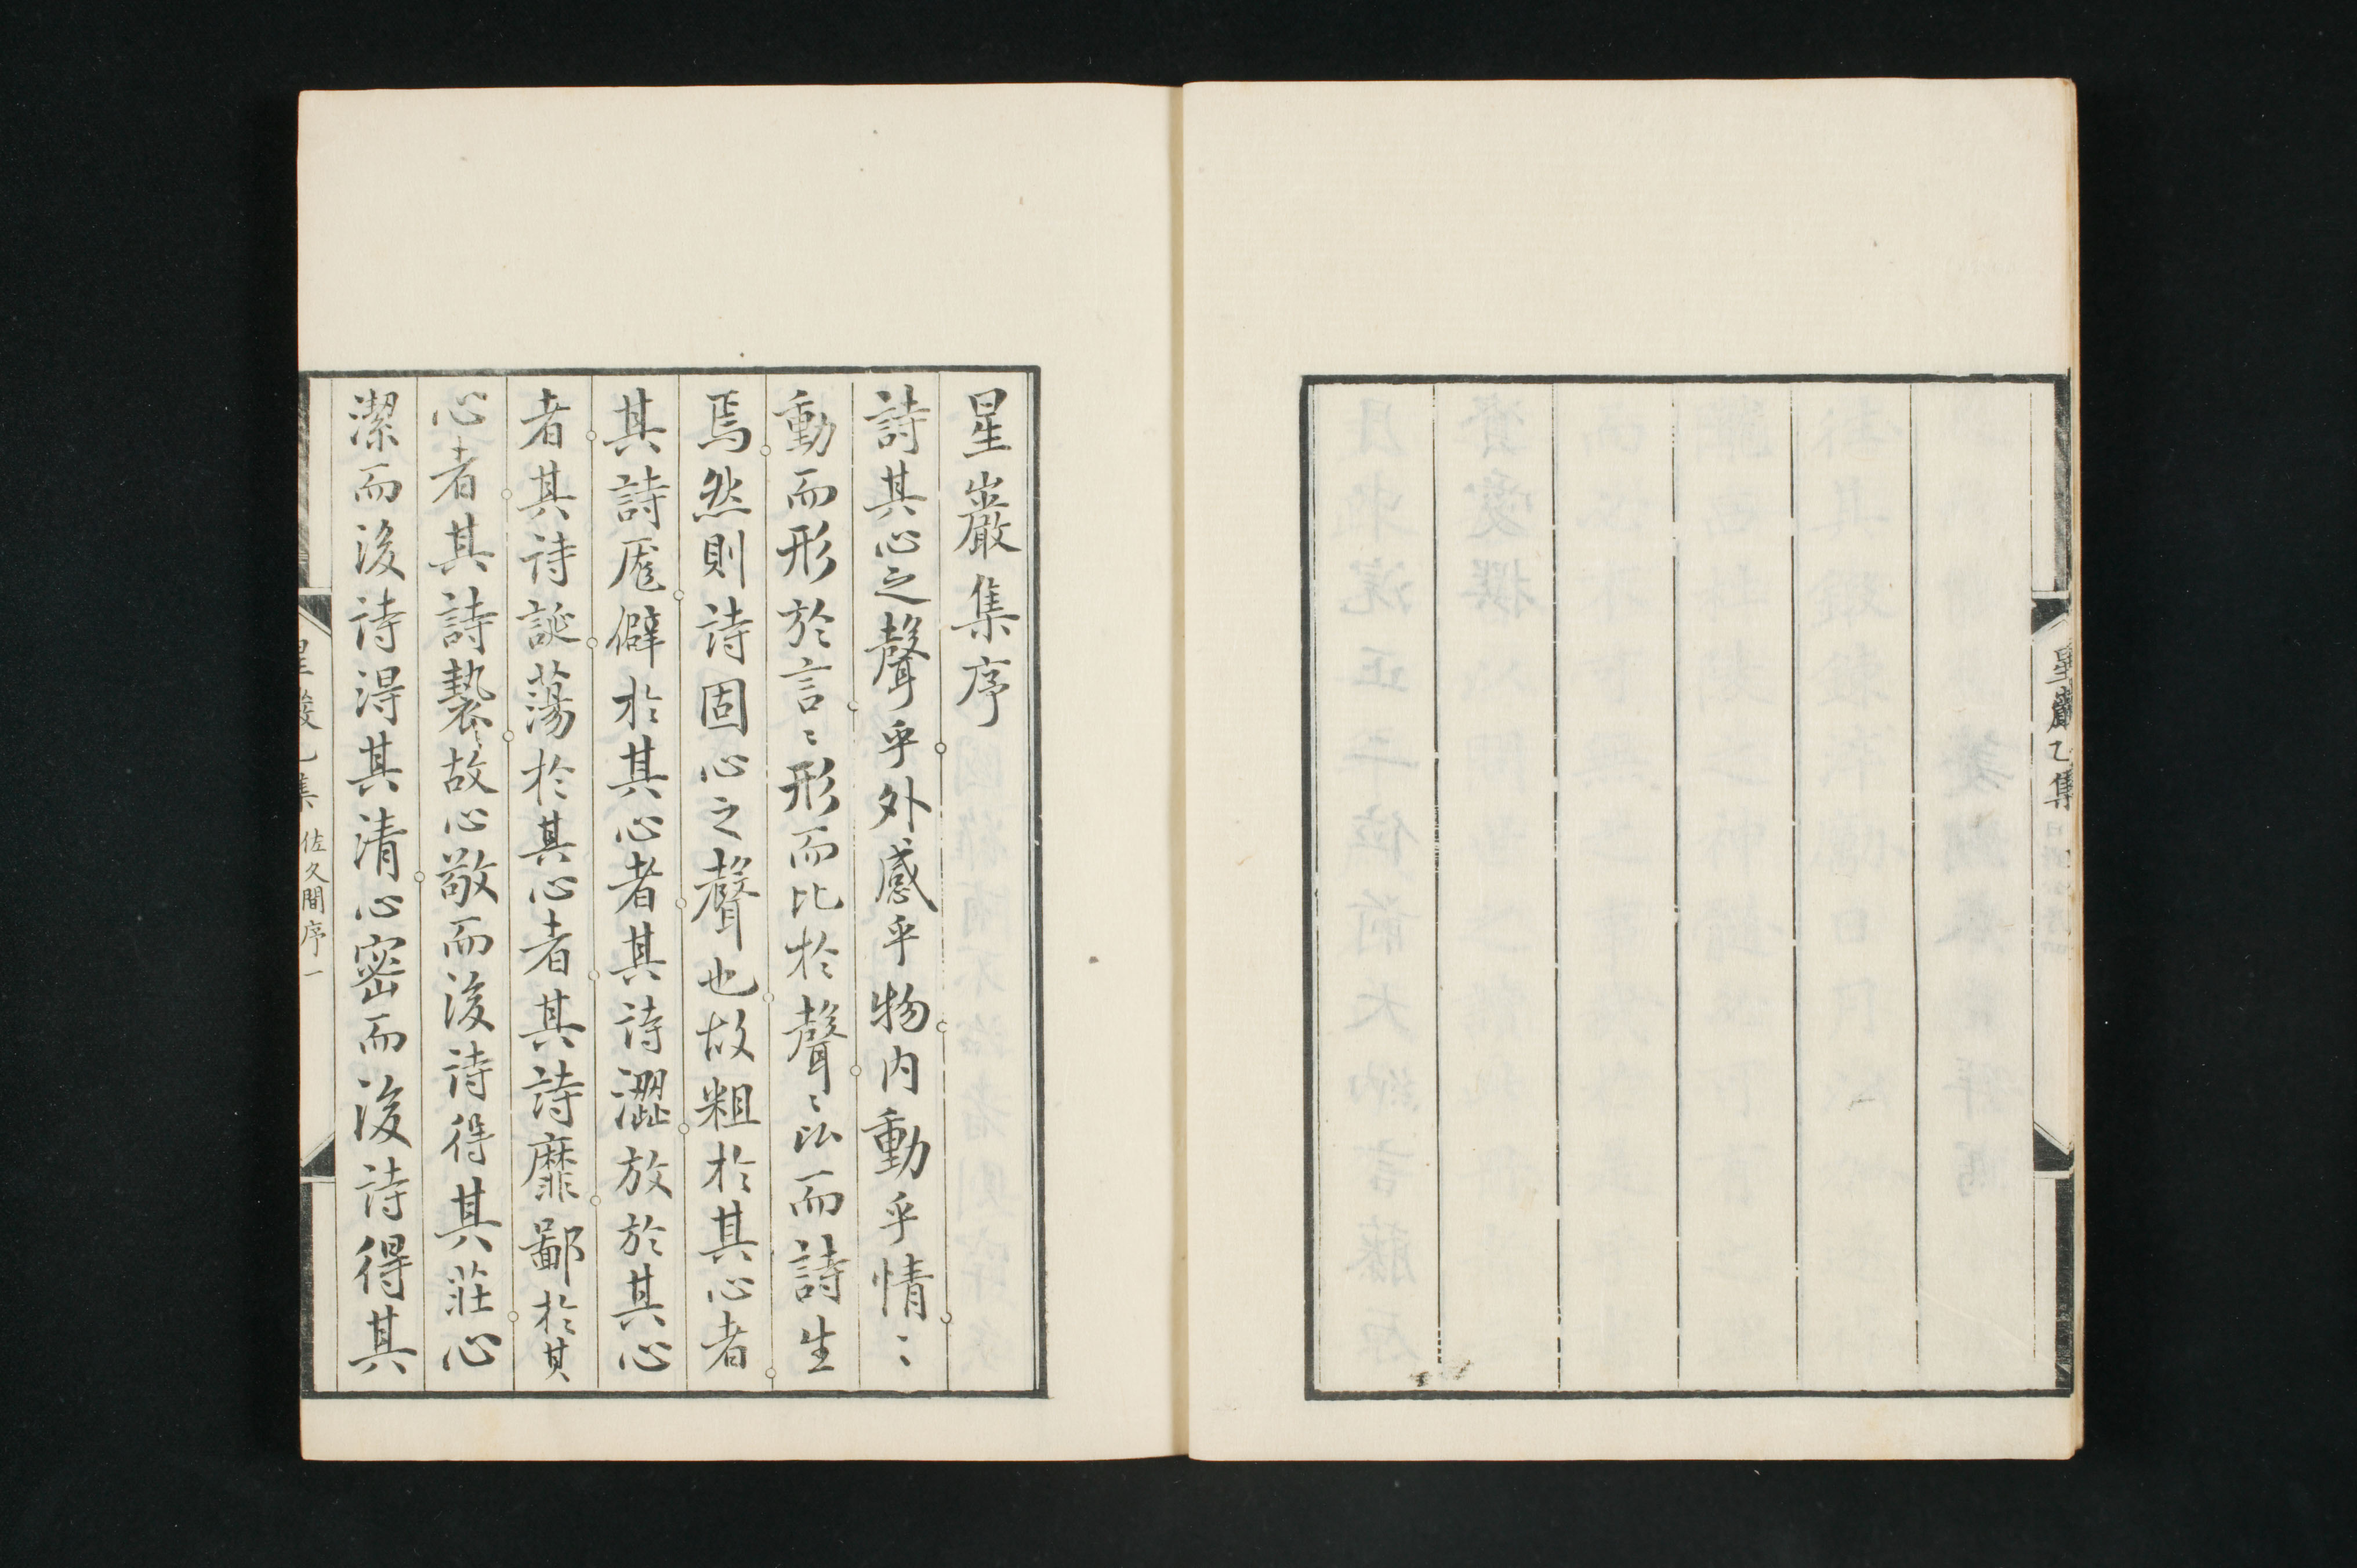 星巖乙集
星巖集序
詩其心之聲乎外感乎物内動乎情〻
動而形於言〻形而比於聲〻比而詩生
焉然則詩固心之聲也故粗於其心者
其詩厖僻於其心者其詩澀放於其心
者其詩誕蕩於其心者其詩靡鄙於其
心者其詩褻故心敬而後詩得其莊心
潔而後詩得其清心密而後詩得其
星巖乙集 佐久間序 一